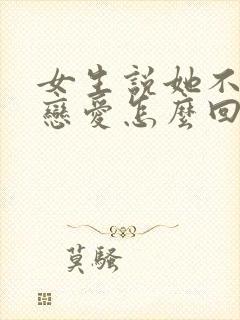 女生說她不
戀愛怎麼回
莫騷